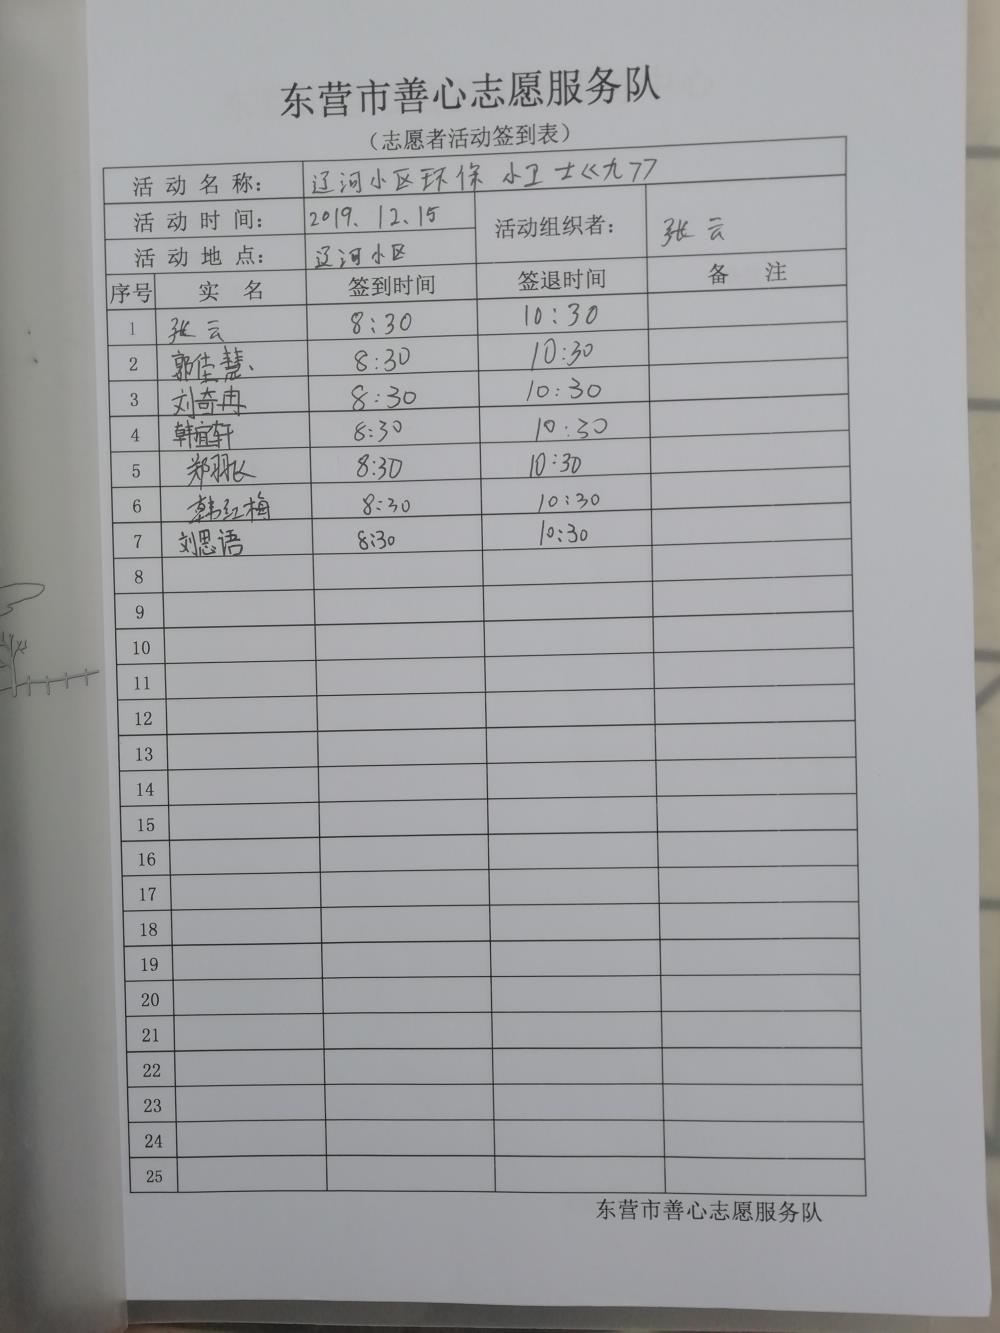 东营市善心志愿服务队
（志愿者活动签到表）
活动名称： 辽河小区环保小卫士<<九>>
活动时间： 2019.12.15 活动组织者： 张云
活动地点： 辽河小区
序号 实名 签到时间 签退时间 备注
1 张云 8:30 10:30
2 郭佳慧 8:30 10:30
3 刘奇冉 8:30 10:30
4 韩宜轩 8:30 10:30
5 郑羽 8:30 10:30
6 韩红梅 8:30 10:30
7 刘思语 8:30 10:30
8
9
10
11
12
13
14
15
16
17
18
19
20
21
22
23
24
25
东营市善心志愿服务队